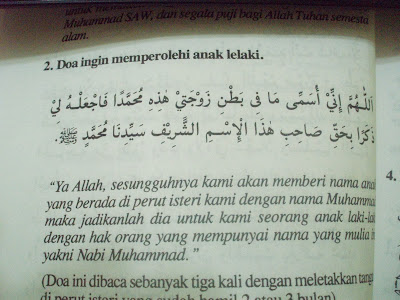 Muhammad SAW, dan segala puji bagi Allah Tuhan semesta
alam.
2. Doa ingin memperolehi anak lelaki.
اَللّٰهُمَّ إِنِّيْ أُسَمِّى مَا فِى بَطْنِ زَوْجَتِيْ هٰذِهِ مُحَمَّدًا فَاجْعَلْهُ لِيْ
ذَكَرًا بِحَقِّ صَاحِبِ هٰذَا الْإِسْمِ الشَّرِيْفِ سَيِّدِنَا مُحَمَّدٍ ﷺ.
"Ya Allah, sesungguhnya kami akan memberi nama
yang berada di perut isteri kami dengan nama
maka jadikanlah dia untuk kami seorang anak laki-
dengan hak orang yang mempunyai nama yang mulia
yakni Nabi Muhammad."
(Doa ini dibaca sebanyak tiga kali dengan meletakkan
di perut isteri yang sudah hamil 2 atau 3 bulan)
4.